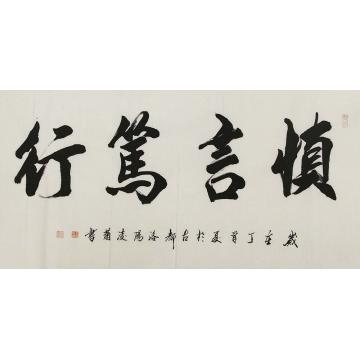 慎言篤行
歲在丁酉夏於古都洛陽凌蘭書